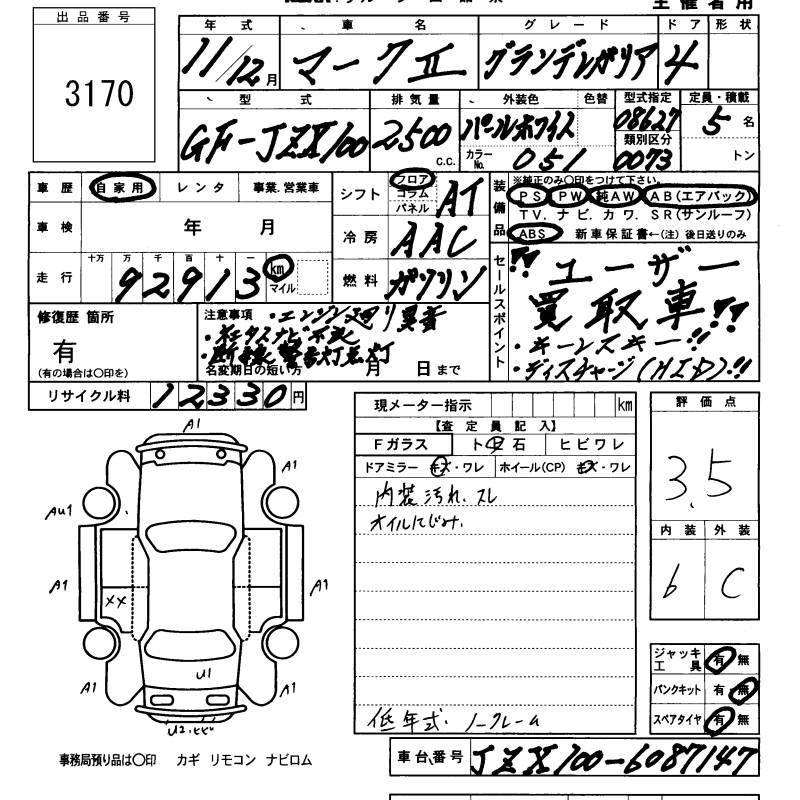 主催者用
出品番号
3170
年式 車名 グレード ドア 形状
11/12月 マークⅡ グランデレガリア 4
型式 排気量 外装色 色替 型式指定 定員・積載
GF-JZX100 2500 c.c. パールホワイト 08627 5 名
カラーNo. 051 類別区分 0073 トン
車歴 自家用 レンタ 事業.営業車
車検 年 月
走行 十万 万 千 百 十 一
92913 km マイル
シフト フロア コラム パネル AT
冷房 AAC
燃料 ガソリン
装備品
※純正のみ〇印をつけて下さい。
PS PW 純AW AB(エアバック)
TV. ナビ. カワ. SR(サンルーフ)
ABS 新車保証書←(注)後日送りのみ
セールスポイント
ユーザー
買取車!!
・キーレスキー!!
・ディスチャージ(HID)!!
修復歴 箇所
有
(有の場合は〇印を)
注意事項 ・エンジン廻り異音
・断線警告灯点灯
名変期日の短い方 月 日まで
リサイクル料 12330円
現メーター指示 km
【査定員記入】
Fガラス ト中石 ヒビワレ
ドアミラー キズ・ワレ ホイール(CP) キズ・ワレ
内装汚れ、スレ
オイルにじみ.
低年式. ノークレーム
評価点
3.5
内装 外装
b C
A1
A1
Au1
A1
A1
××
A1
U1
A1
U2.
ジャッキ工具 有 無
パンクキット 有 無
スペアタイヤ 有 無
事務局預り品は〇印 カギ リモコン ナビロム
車台番号 JZX100-6087147